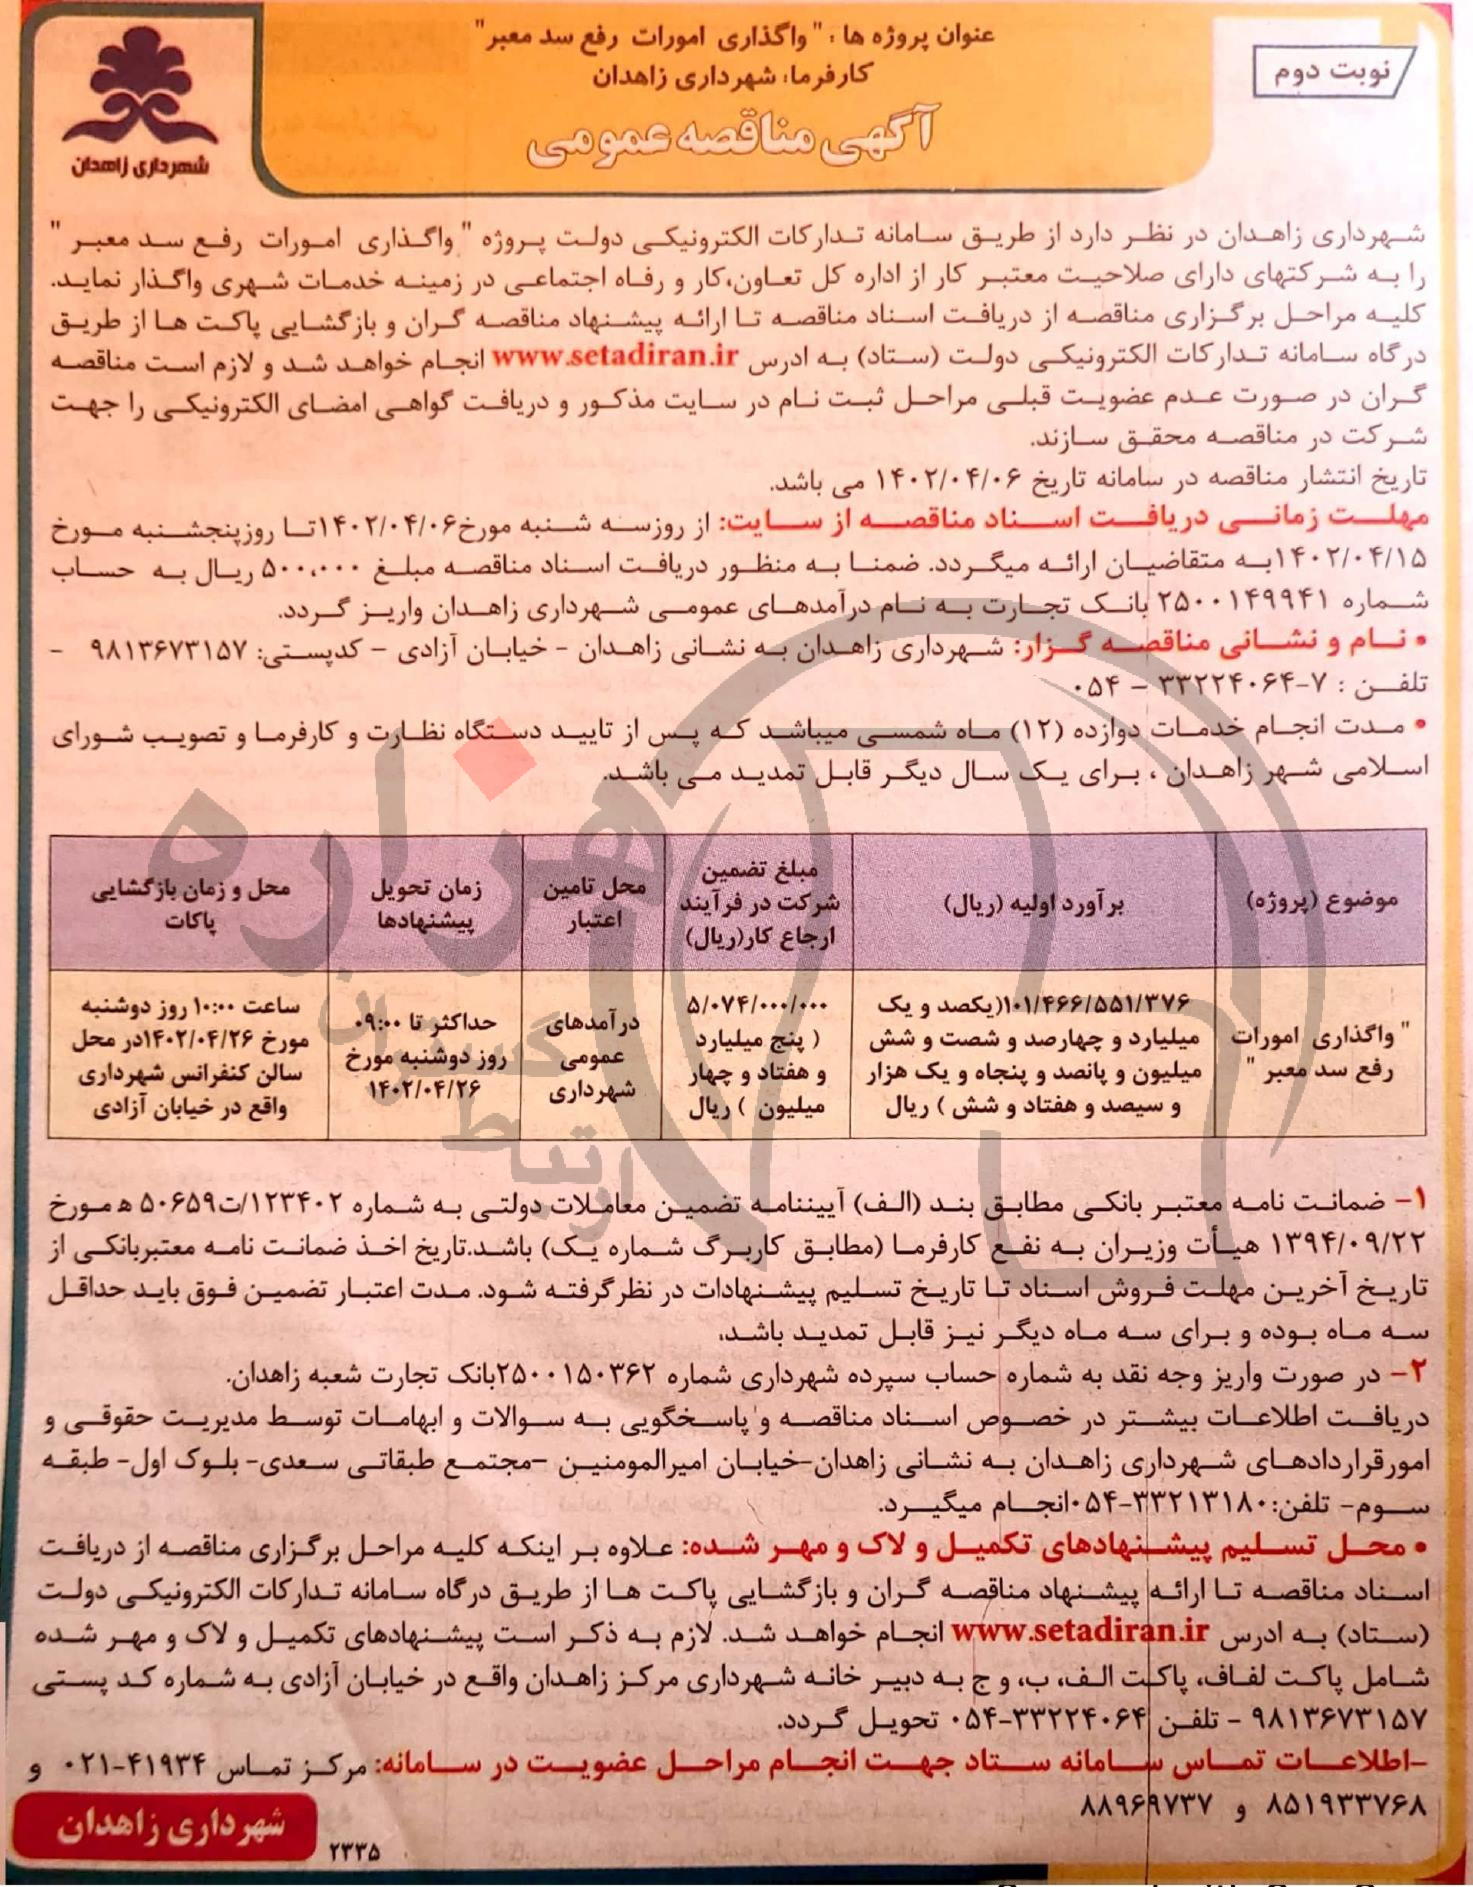 نوبت دوم
عنوان پروژه ها : " واگذاری امورات رفع سد معبر "
کارفرما: شهرداری زاهدان
آگهی مناقصه عمومی
شهرداری زاهدان
شهرداری زاهدان در نظر دارد از طریق سامانه تدارکات الکترونیکی دولت پروژه " واگذاری امورات رفع سد معبر "
را به شرکتهای دارای صلاحیت معتبر کار از اداره کل تعاون،کار و رفاه اجتماعی در زمینه خدمات شهری واگذار نماید.
کلیه مراحل برگزاری مناقصه از دریافت اسناد مناقصه تا ارائه پیشنهاد مناقصه گران و بازگشایی پاکت ها از طریق
درگاه سامانه تدارکات الکترونیکی دولت (ستاد) به ادرس www.setadiran.ir انجام خواهد شد و لازم است مناقصه
گران در صورت عدم عضویت قبلی مراحل ثبت نام در سایت مذکور و دریافت گواهی امضای الکترونیکی را جهت
شرکت در مناقصه محقق سازند.
تاریخ انتشار مناقصه در سامانه تاریخ ۱۴۰۲/۰۴/۰۶ می باشد.
مهلت زمانی دریافت اسناد مناقصه از سایت: از روزسه شنبه مورخ۱۴۰۲/۰۴/۰۶تا روزپنجشنبه مورخ
۱۴۰۲/۰۴/۱۵به متقاضیان ارائه میگردد. ضمنا به منظور دریافت اسناد مناقصه مبلغ ۵۰۰،۰۰۰ ریال به حساب
شماره ۲۵۰۰۱۴۹۹۴۱ بانک تجارت به نام درآمدهای عمومی شهرداری زاهدان واریز گردد.
• نام و نشانی مناقصه گزار: شهرداری زاهدان به نشانی زاهدان - خیابان آزادی – کدپستی: ۹۸۱۳۶۷۳۱۵۷ -
تلفن : ۷-۳۳۲۲۴۰۶۴ – ۰۵۴
• مدت انجام خدمات دوازده (۱۲) ماه شمسی میباشد که پس از تایید دستگاه نظارت و کارفرما و تصویب شورای
اسلامی شهر زاهدان ، برای یک سال دیگر قابل تمدید می باشد.
موضوع (پروژه)
برآورد اولیه (ریال)
مبلغ تضمین
شرکت در فرآیند
ارجاع کار(ریال)
محل تامین
اعتبار
زمان تحویل
پیشنهادها
محل و زمان بازگشایی
پاکات
" واگذاری امورات
رفع سد معبر "
۱۰۱/۴۶۶/۵۵۱/۳۷۶(یکصد و یک
میلیارد و چهارصد و شصت و شش
میلیون و پانصد و پنجاه و یک هزار
و سیصد و هفتاد و شش ) ریال
۵/۰۷۴/۰۰۰/۰۰۰
( پنج میلیارد
و هفتاد و چهار
میلیون ) ریال
درآمدهای
عمومی
شهرداری
حداکثر تا ۰۹:۰۰
روز دوشنبه مورخ
۱۴۰۲/۰۴/۲۶
ساعت ۱۰:۰۰ روز دوشنبه
مورخ ۱۴۰۲/۰۴/۲۶در محل
سالن کنفرانس شهرداری
واقع در خیابان آزادی
هزاره
گستران
ارتباط
۱- ضمانت نامه معتبر بانکی مطابق بند (الف) آییننامه تضمین معاملات دولتی به شماره ۱۲۳۴۰۲/ت۵۰۶۵۹ ه مورخ
۱۳۹۴/۰۹/۲۲ هیأت وزیران به نفع کارفرما (مطابق کاربرگ شماره یک) باشد.تاریخ اخذ ضمانت نامه معتبربانکی از
تاریخ آخرین مهلت فروش اسناد تا تاریخ تسلیم پیشنهادات در نظرگرفته شود. مدت اعتبار تضمین فوق باید حداقل
سه ماه بوده و برای سه ماه دیگر نیز قابل تمدید باشد.
۲- در صورت واریز وجه نقد به شماره حساب سپرده شهرداری شماره ۲۵۰۰۱۵۰۳۶۲بانک تجارت شعبه زاهدان.
دریافت اطلاعات بیشتر در خصوص اسناد مناقصه و پاسخگویی به سوالات و ابهامات توسط مدیریت حقوقی و
امورقراردادهای شهرداری زاهدان به نشانی زاهدان-خیابان امیرالمومنین -مجتمع طبقاتی سعدی- بلوک اول- طبقه
سوم- تلفن:۳۳۲۱۳۱۸۰-۰۵۴انجام میگیرد.
• محل تسلیم پیشنهادهای تکمیل و لاک و مهر شده: علاوه بر اینکه کلیه مراحل برگزاری مناقصه از دریافت
اسناد مناقصه تا ارائه پیشنهاد مناقصه گران و بازگشایی پاکت ها از طریق درگاه سامانه تدارکات الکترونیکی دولت
(ستاد) به ادرس www.setadiran.ir انجام خواهد شد. لازم به ذکر است پیشنهادهای تکمیل و لاک و مهر شده
شامل پاکت لفاف، پاکت الف، ب، و ج به دبیر خانه شهرداری مرکز زاهدان واقع در خیابان آزادی به شماره کد پستی
۹۸۱۳۶۷۳۱۵۷ - تلفن ۳۳۲۲۴۰۶۴-۰۵۴ تحویل گردد.
-اطلاعات تماس سامانه ستاد جهت انجام مراحل عضویت در سامانه: مرکز تماس ۴۱۹۳۴-۰۲۱ و
۸۵۱۹۳۳۷۶۸ و ۸۸۹۶۹۷۳۷
شهرداری زاهدان
۲۳۳۵